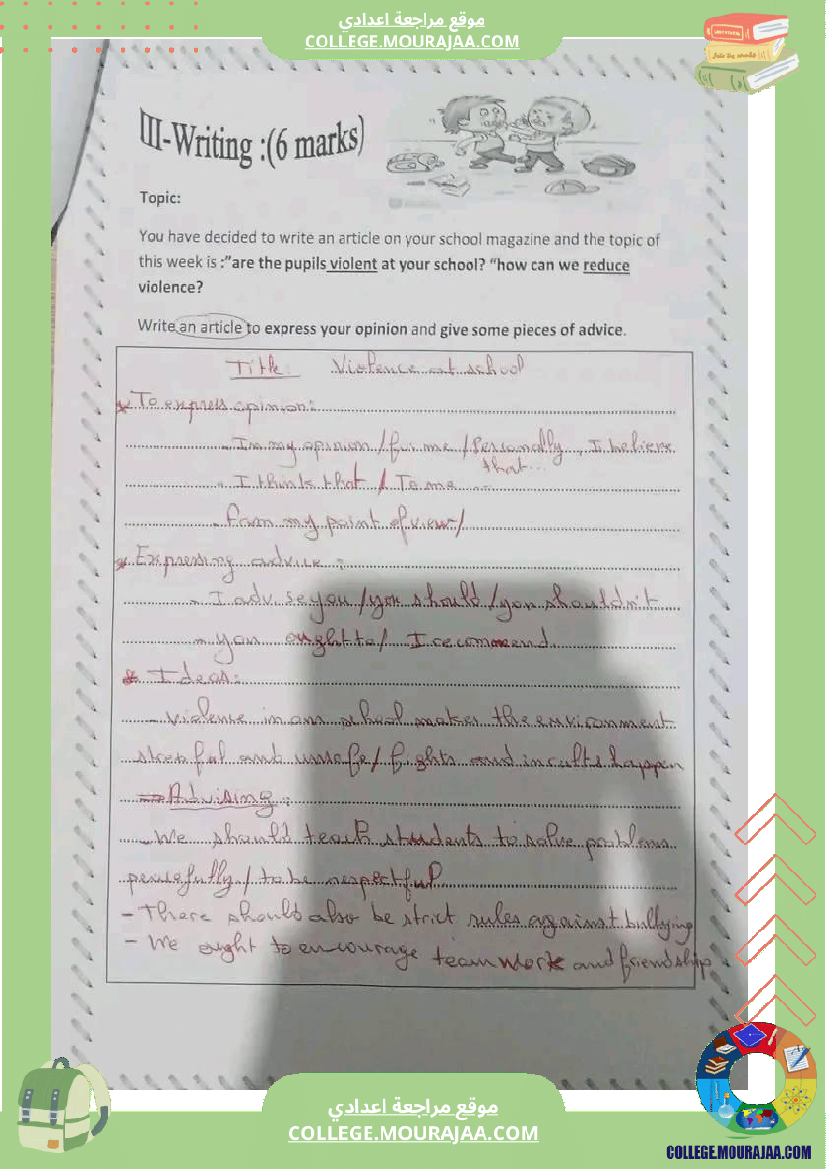 موقع مراجعة اعدادي
COLLEGE.MOURAJAA.COM
III-Writing :(6 marks)
Topic:
You have decided to write an article on your school magazine and the topic of
this week is :"are the pupils violent at your school? "how can we reduce
violence?
Write an article to express your opinion and give some pieces of advice.
Title: Violence at school
* To express opinion:
- In my opinion / for me / Personally, I believe
that...
- I think that / To me ...
- from my point of view/
* Expressing advice :
- I advise you / you should / you shouldn't
- you ought to / I recommend
* Ideas:
- Violence in our school makes the environment
stressful and unsafe / fights and insults happen
⇒ Advising :
- We should teach students to solve problems
peacefully / to be respectful
- There should also be strict rules against bullying
- We ought to encourage team work and friendship
موقع مراجعة اعدادي
COLLEGE.MOURAJAA.COM
COLLEGE.MOURAJAA.COM